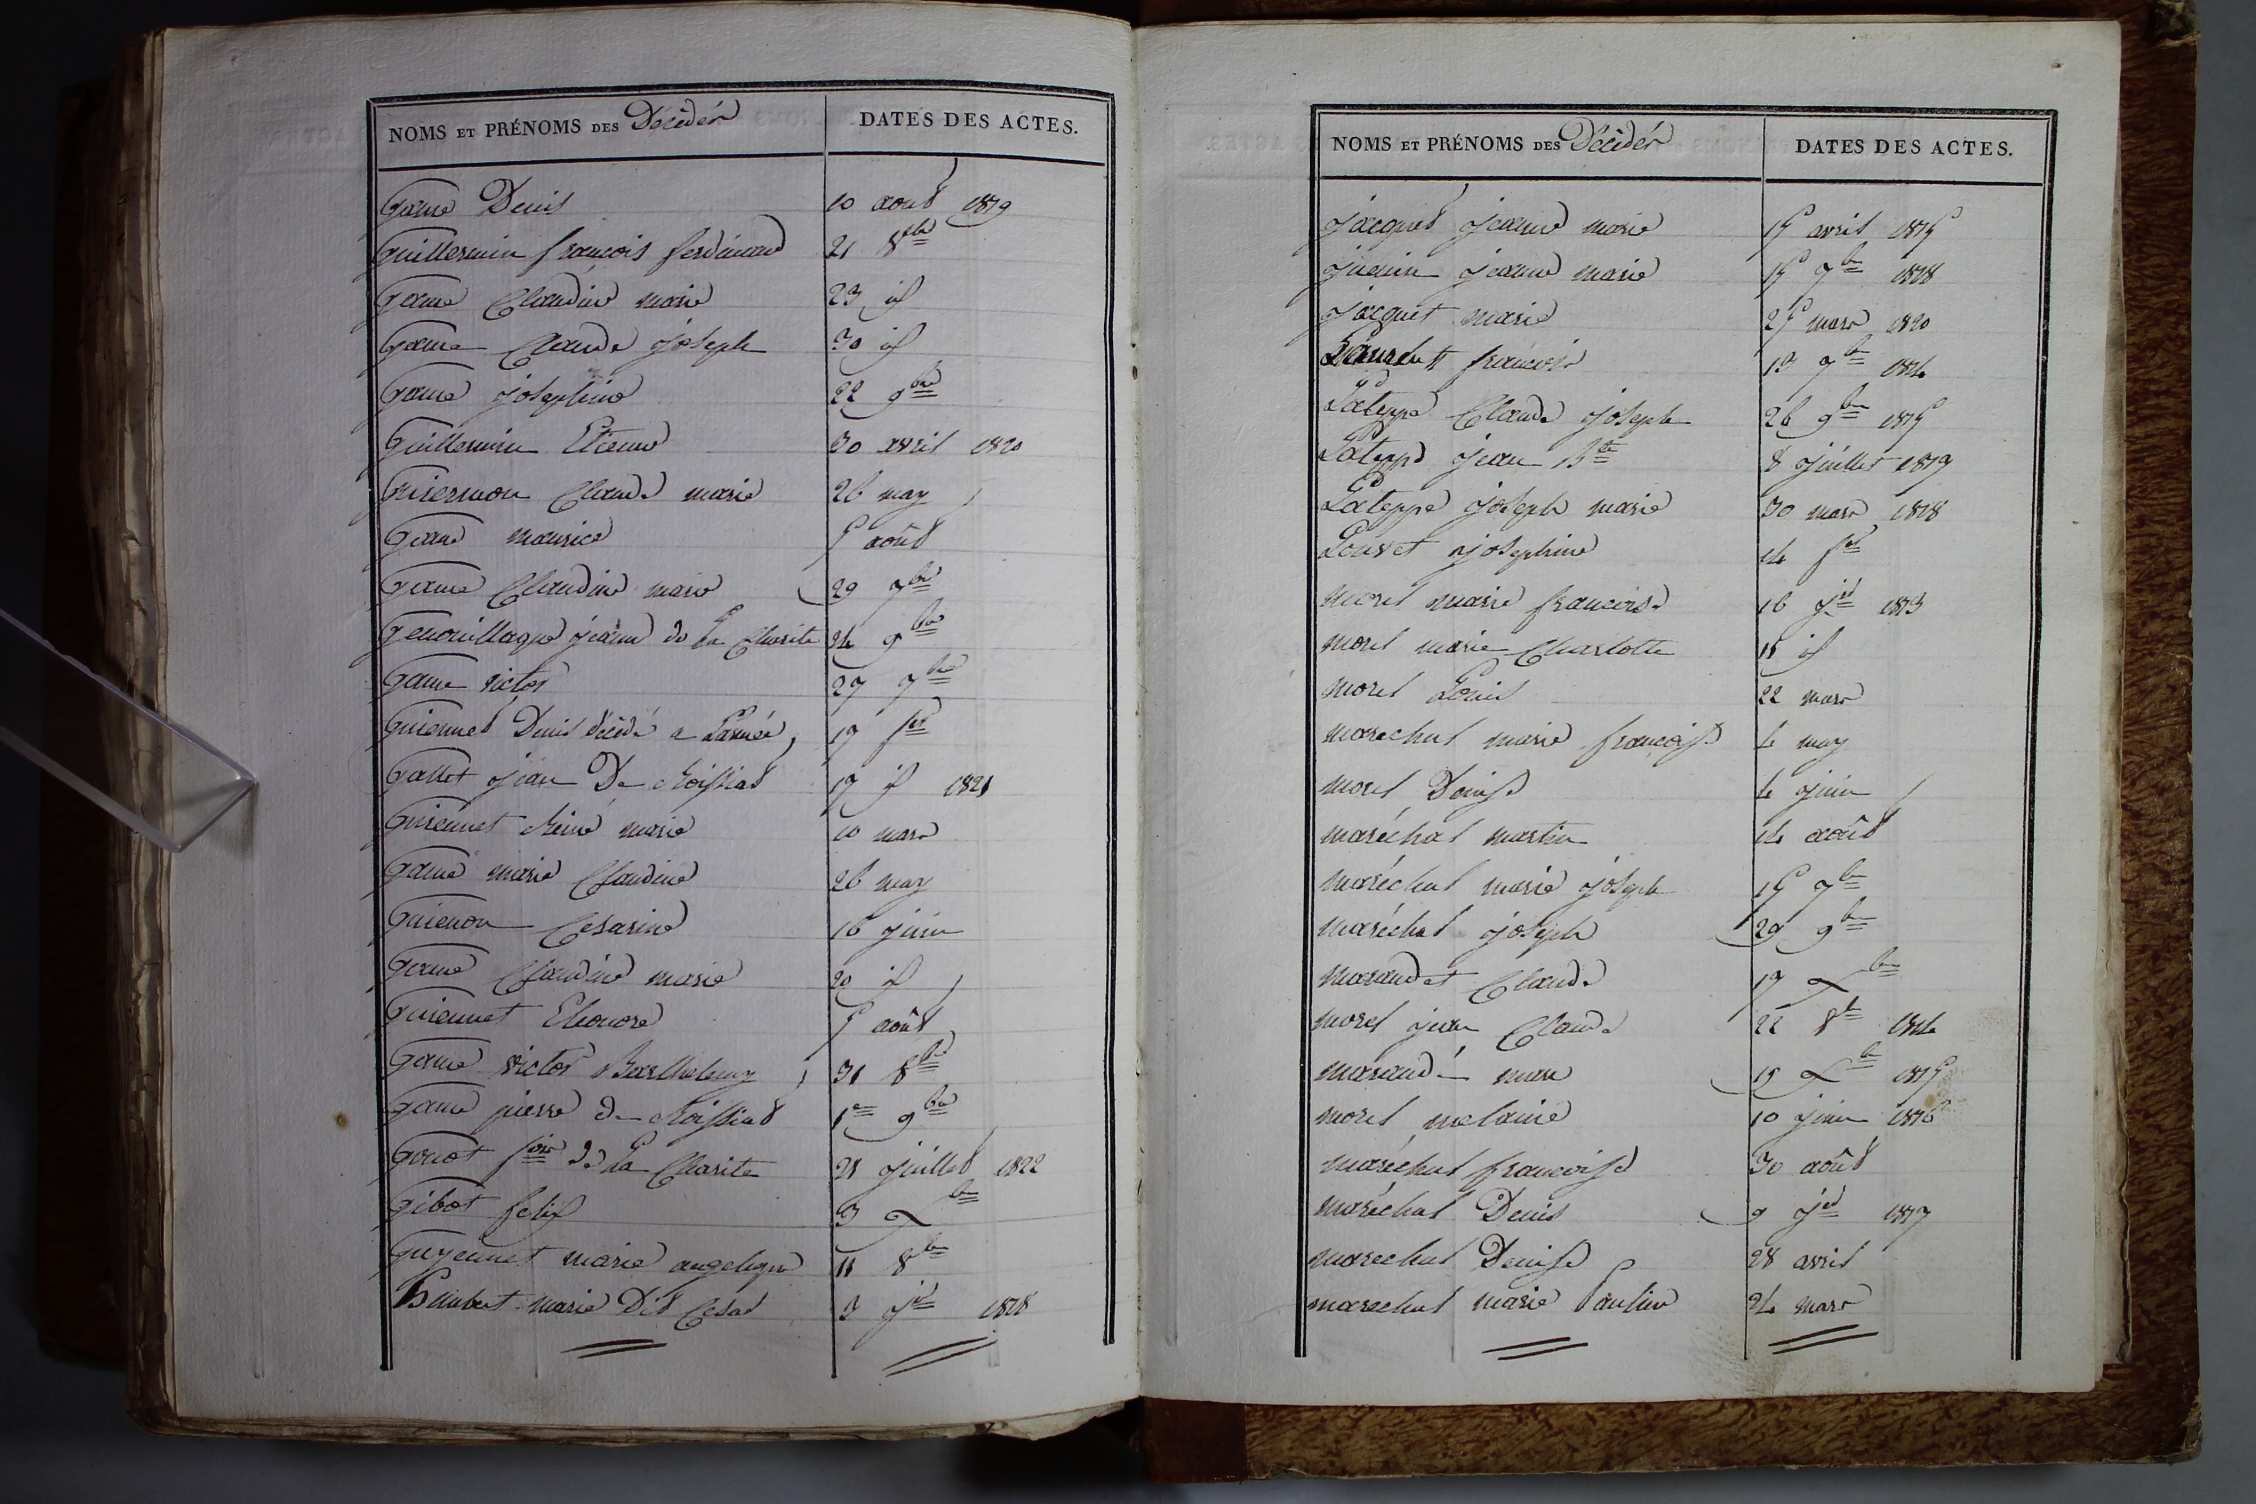 NOMS ET PRÉNOMS DES Décédés DATES DES ACTES.
Game Denis 10 août 1819
Guillermin francois ferdinand 21 8bre
Game Claudine marie 23 id
Game Claude joseph 30 id
Game josephine 22 9bre
Guillermin Etienne 30 avril 1820
Guiermon Claude marie 26 may
Game maurice 5 août
Game Claudine marie 29 7bre
Genouillaque jeanne de La Charite 24 9bre
Game victor 27 7bre
Guiennet Denis décédé a L'armée 19 fer
Gallet jean De Moissiat 19 id 1821
Guiennet Reine marie 10 mars
Game marie Claudine 26 may
Guienon Cesarine 16 juin
Game Claudine marie 20 id
Guiennet Eleonore 5 août
Game victor Barthelemy 31 8bre
Game pierre de Moissiat 1er 9bre
Gonot de La Charite 21 juillet 1822
Gibot felix 3 Xbre
Guyennet marie angelique 11 8bre
Humbert marie Dit Cesar 3 jer 1818
NOMS ET PRÉNOMS DES Décédés DATES DES ACTES.
jacquet jeanne marie 15 avril 1815
jeanne marie 15 7bre 1818
jacquet marie 25 mars 1820
francois 13 7bre 1814
Lateppe Claude joseph 26 9bre 1815
Lateppe jean Bte 8 juillet 1819
Lateppe joseph marie 30 mars 1818
Louvet josephine 14 fer
morel marie francoise 16 jer 1813
morel marie Charlotte 18 id
morel Louis 22 mars
marechal marie francoise 4 may
morel Denise 4 juin
maréchal martin 14 août
maréchal marie joseph 15 7bre
maréchal joseph 29 9bre
marandet Claude 19 Xbre
morel jean Claude 22 8bre 1814
marandé marie 15 Xbre 1815
morel melanie 10 juin 1816
maréchal francoise 30 août
maréchal Denis 9 jer 1817
marechal Denise 28 avril
marechal marie Pauline 24 mars